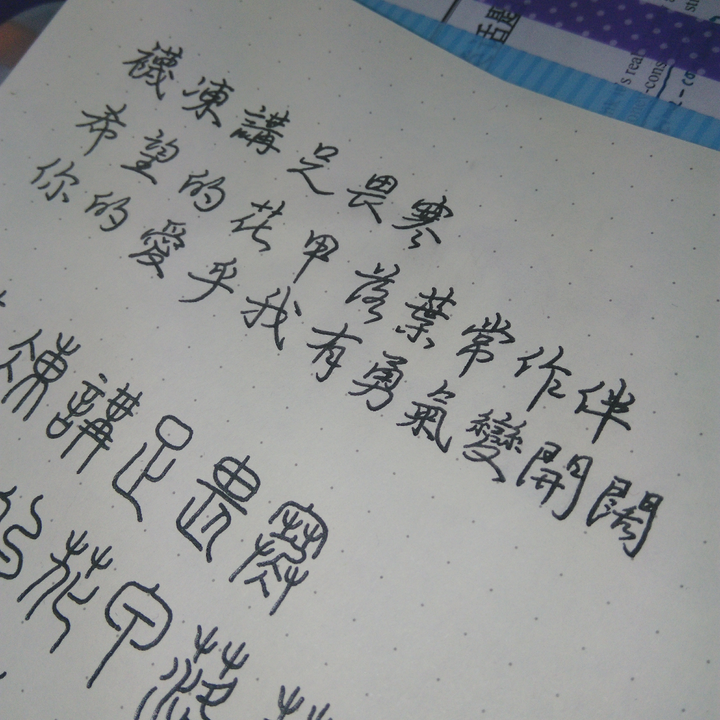 襪凍講足畏寒
希望的花甲落葉常作伴
你的愛乎我有勇氣變開闊
凍講足畏寒
的花甲落